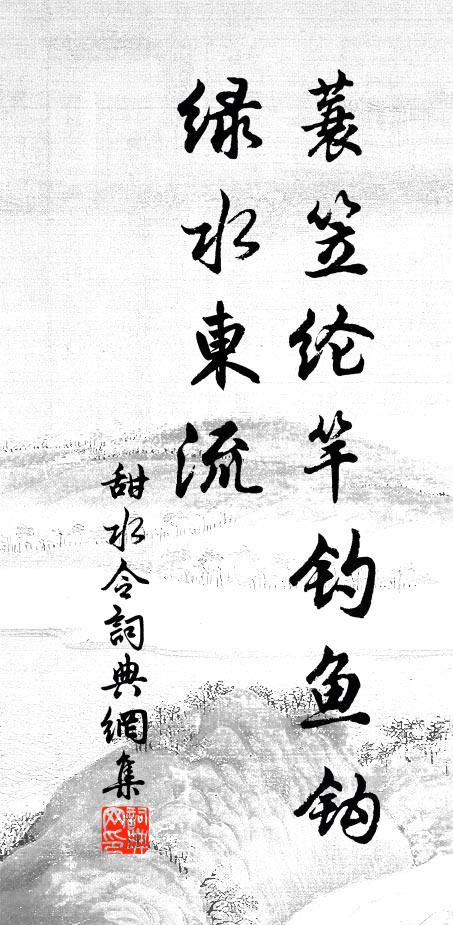 蓑笠纶竿钓鱼钩
绿水東流
甜水令詞典網集